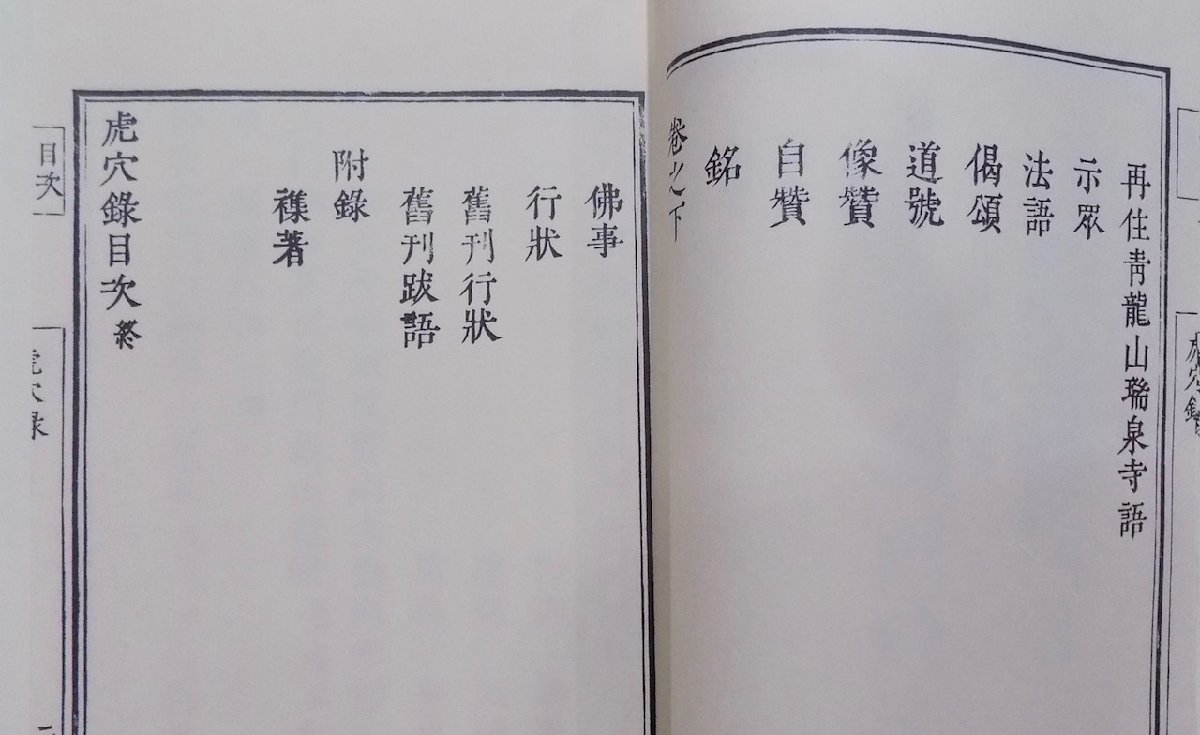 再住青龍山瑞泉寺語
示眾
法語
偈頌
道號
像贊
自贊
銘
卷之下
佛事
行狀
舊刊行狀
舊刊跋語
附錄
襍著
虎穴錄目次終
目次
虎穴錄
虎穴錄